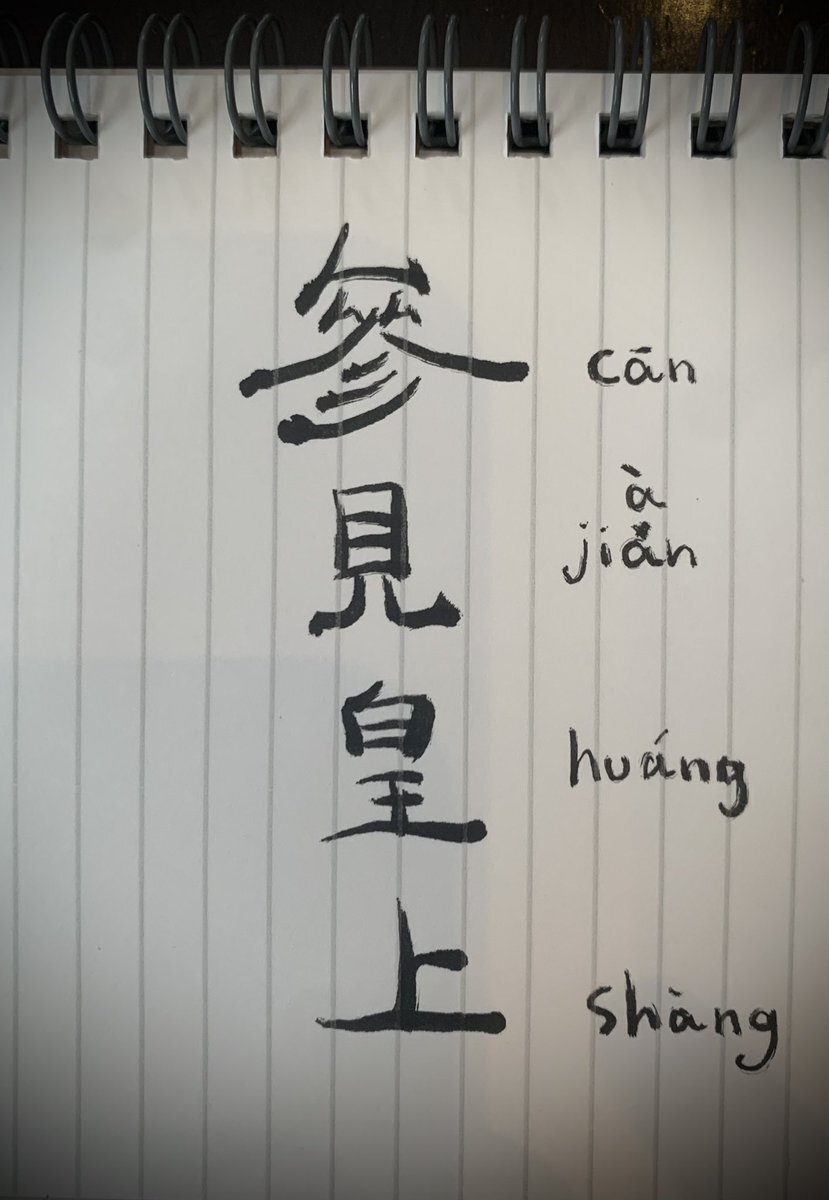 參見皇上
cān
à
jiǎn
huáng
shàng